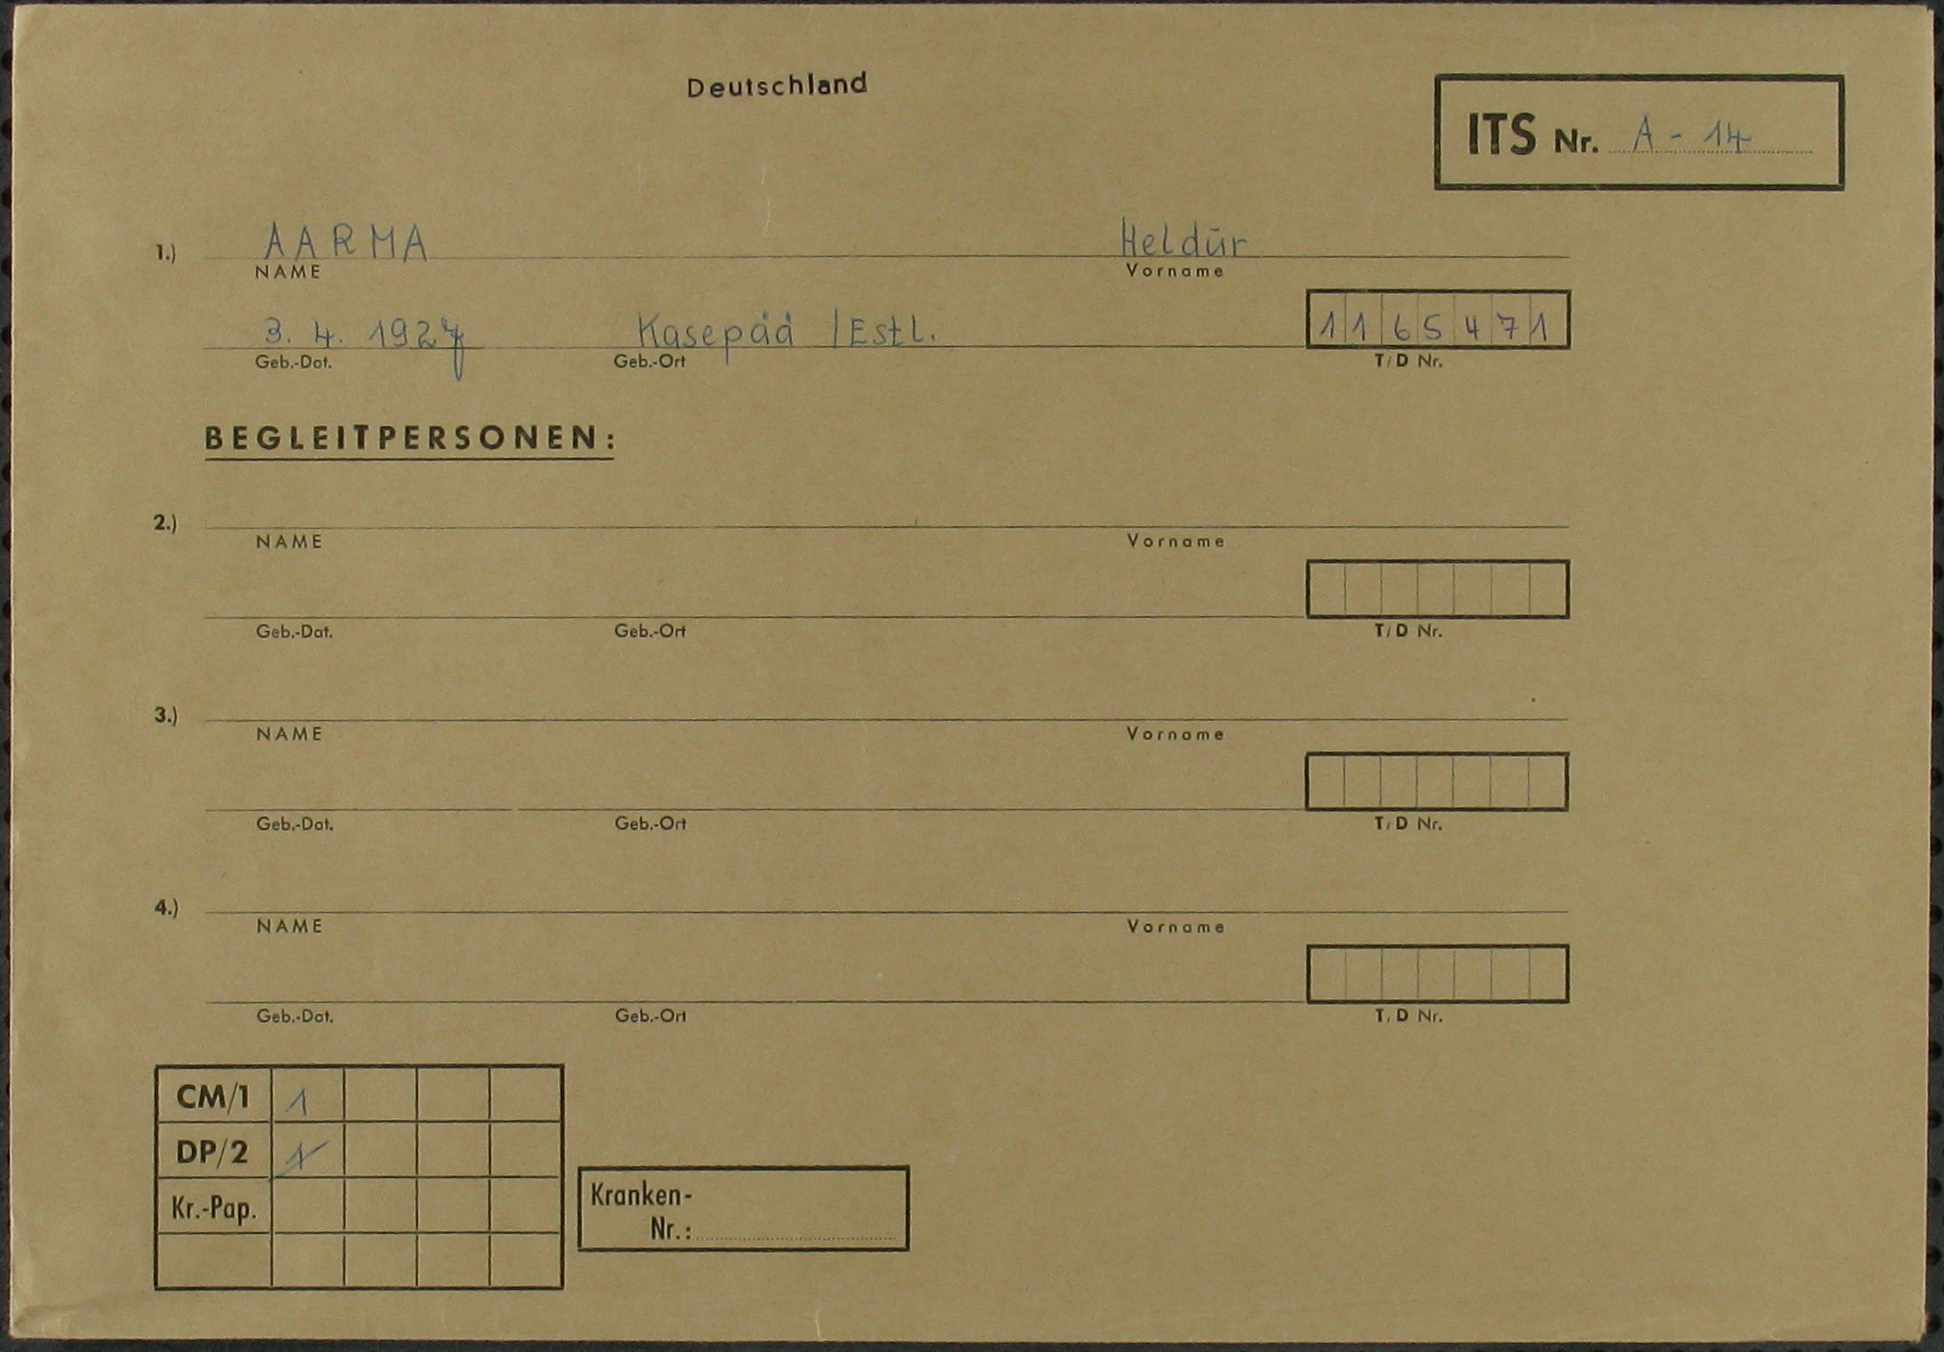 Deutschland
ITS Nr. A - 14
1.) AARMA Heldūr
NAME Vorname
3. 4. 1927 Kasepää /Estl. 1165471
Geb.-Dat. Geb.-Ort T/D Nr.
BEGLEITPERSONEN:
2.)
NAME Vorname
Geb.-Dat. Geb.-Ort T/D Nr.
3.)
NAME Vorname
Geb.-Dat. Geb.-Ort T/D Nr.
4.)
NAME Vorname
Geb.-Dat. Geb.-Ort T/D Nr.
CM/1 1
DP/2 1
Kr.-Pap.
Kranken-
Nr.: